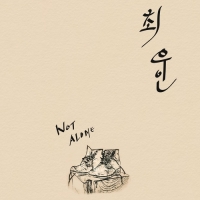 최 우인
NOT
ALONE